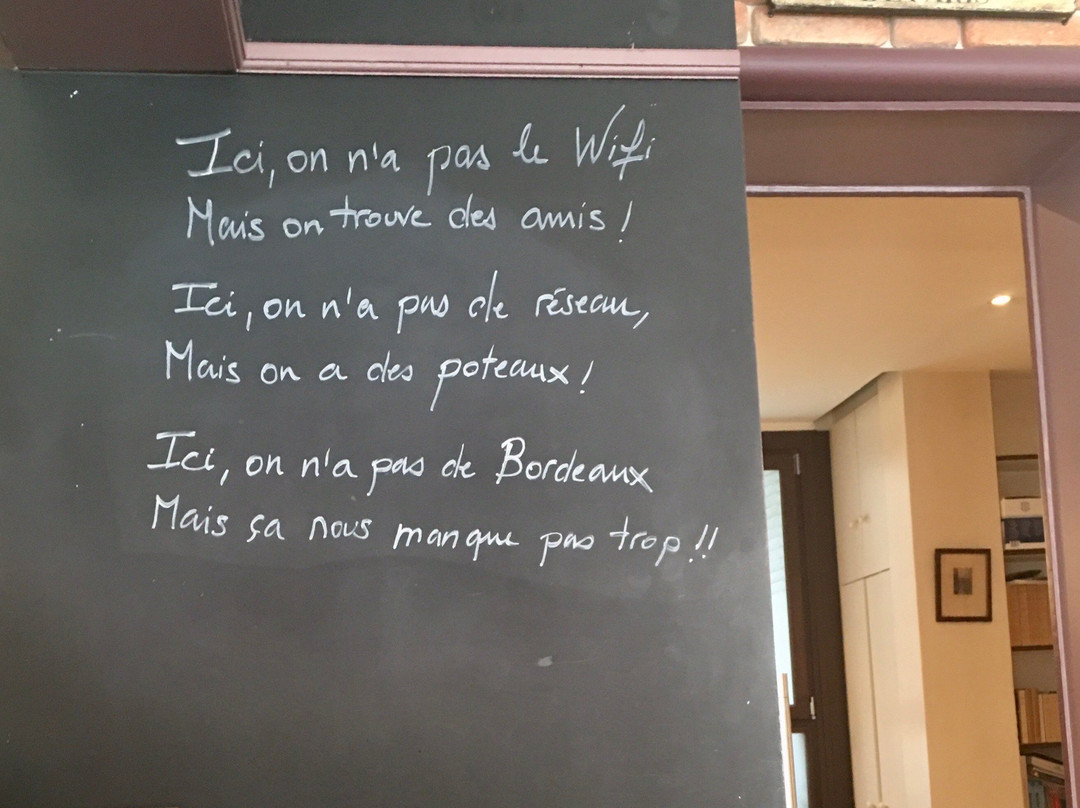 Ici, on n'a pas le Wifi
Mais on trouve des amis !
Ici, on n'a pas de réseau,
Mais on a des poteaux !
Ici, on n'a pas de Bordeaux
Mais ça nous manque pas trop !!